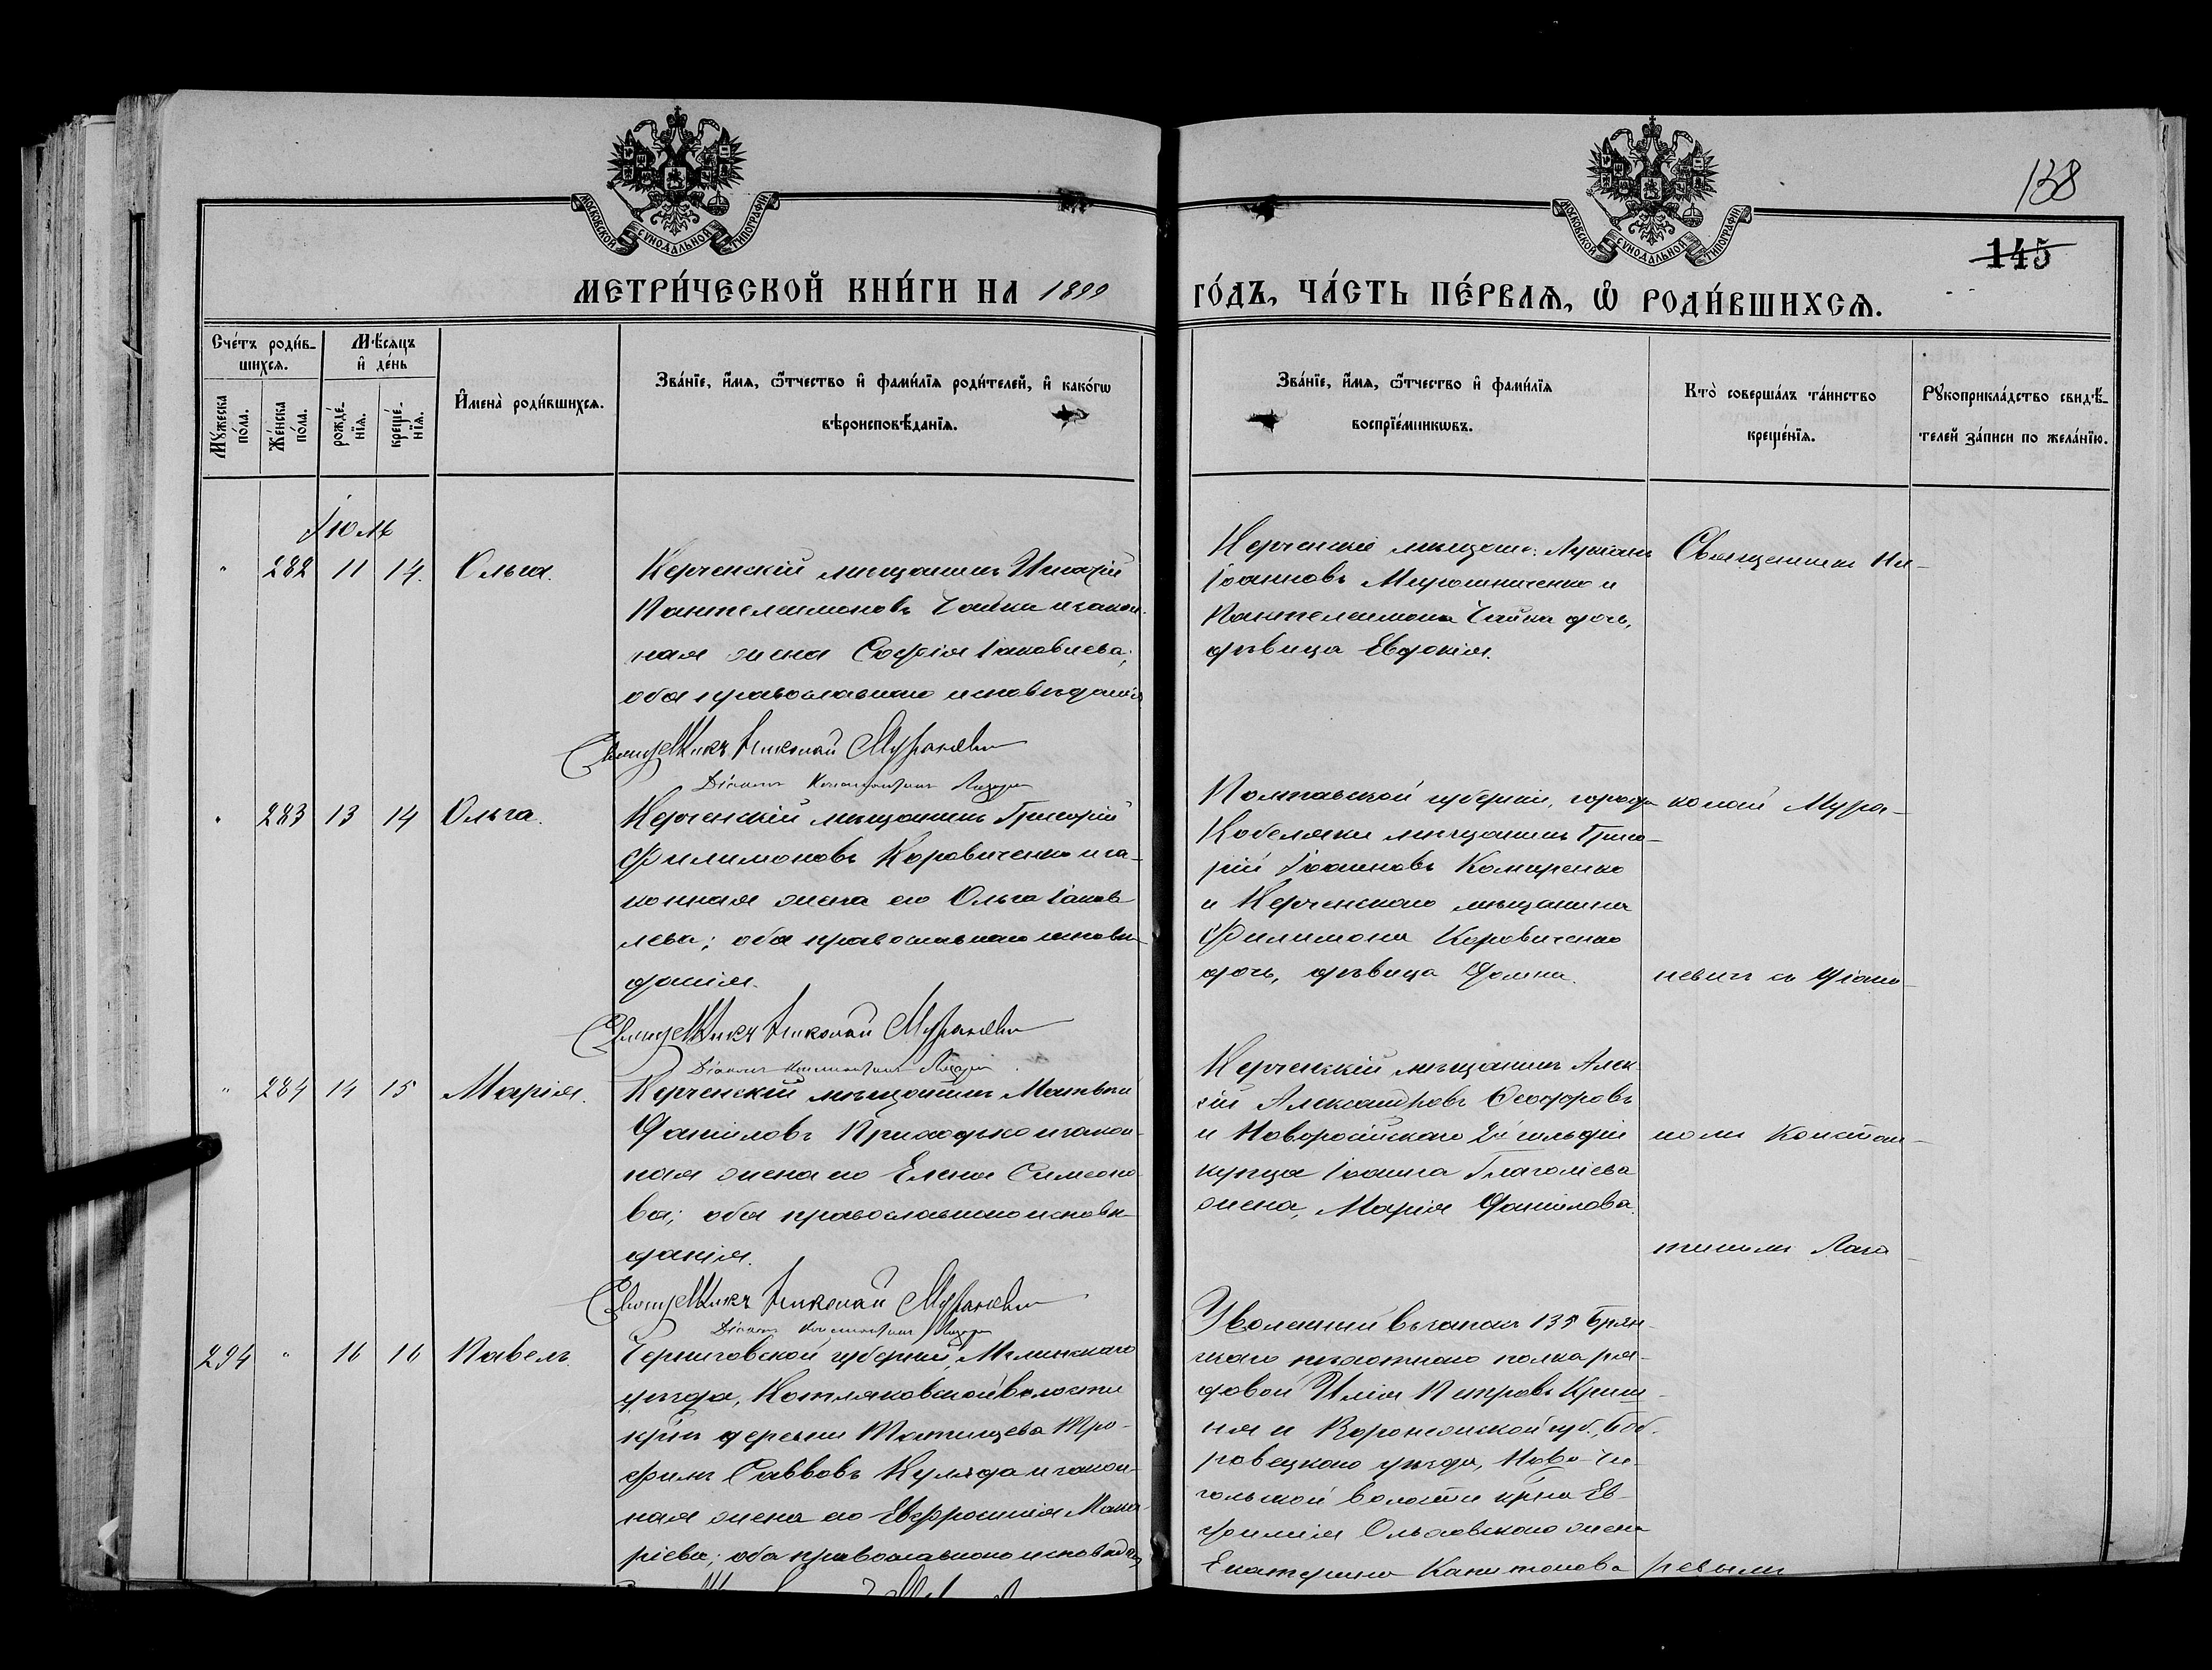 138
145
МОСКОВСКОЙ СѴНОДАЛЬНОЙ ТИПОГРАФІИ
МОСКОВСКОЙ СѴНОДАЛЬНОЙ ТИПОГРАФІИ
МЕТРИ́ЧЕСКОЙ КНИ́ГИ НА 1899 ГО́ДЪ, ЧА́СТЬ ПЕ́РВАѦ, Ѡ҆ РОДИ́ВШИХСѦ.
Сче́тъ роди́в-
шихсѧ.
Мꙋ́жеска по́ла.
Же́нска по́ла.
Мѣ́сяцъ
и҆ де́нь
рожде́-
нїѧ.
креще́-
нїѧ.
И҆мена̀ роди́вшихсѧ.
Зва́нїе, и҆́мѧ, ѻ҆́тчество и҆ фами́лїѧ роди́телей, и҆ како́гѡ
вѣроисповѣ́данїѧ.
Зва́нїе, и҆́мѧ, ѻ҆́тчество и҆ фами́лїѧ
воспрїе́мникѡвъ.
Кто̀ соверша́лъ та́инство
креще́нїѧ.
Рꙋкоприкла́дство свидѣ́-
телей за́писи по жела́нїю.
Іюль
" 282 11 14. Ольга.
Керченскій мѣщанинъ Игнатій
Пантелеимоновъ Чайка и закон-
ная жена Софія Іаковлева;
оба православнаго исповѣданія
Священникъ Николай Мураневич
Діаконъ Константинъ
Керченскій мѣщан. Лукіанъ
Іоанновъ Мирошниченко и
Пантелеимона Чайка дочь,
дѣвица Евдокія.
Священникъ Ни-
" 283 13 14 Ольга.
Керченскій мѣщанинъ Григорій
Филимоновъ Коровиченко и за-
конная жена его Ольга Іаков-
лева; оба православнаго исповѣ-
данія.
Священникъ Николай Мураневич
Діаконъ Константинъ
Полтавской губерніи, города
Кобеляки мѣщанинъ Григо-
рій Іоанновъ Комиренко
и Керченскаго мѣщанина
Филимона Коровиченко
дочь, дѣвица Домна.
колай Мура-
невичъ съ Діако-
" 284 14 15 Марія.
Керченскій мѣщанинъ Матвѣй
Даниловъ Приходько и закон-
ная жена его Елена Симеоно-
ва; оба православнаго исповѣ-
данія.
Священникъ Николай Мураневич
Діаконъ Константинъ
Керченскій мѣщанинъ Алек-
сій Александровъ Ѳеодоровъ
и Новоросійскаго 2й гильдіи
купца Іоанна Глаголіева
жена, Марія Данилова.
номъ Констан-
тиномъ Лаза-
294 " 16 16 Павелъ.
Черниговской губерніи, Мглинскаго
уѣзда, Котляковской волости
крнъ деревни Татищева Тро-
фимъ Саввовъ Куляда и закон-
ная жена его Евфросинія Мака-
ріева; оба православнаго исповѣдан.
Уволенный въ запасъ 135 Брян-
скаго пѣхотнаго полка ря-
довой Илія Петровъ
и Воронежской губ., Боб-
ровецкаго уѣзда, Ново-Чи-
гольской волости крна Ев-
фимія Ольховскаго жена
Екатерина Капитонова
ревымъ